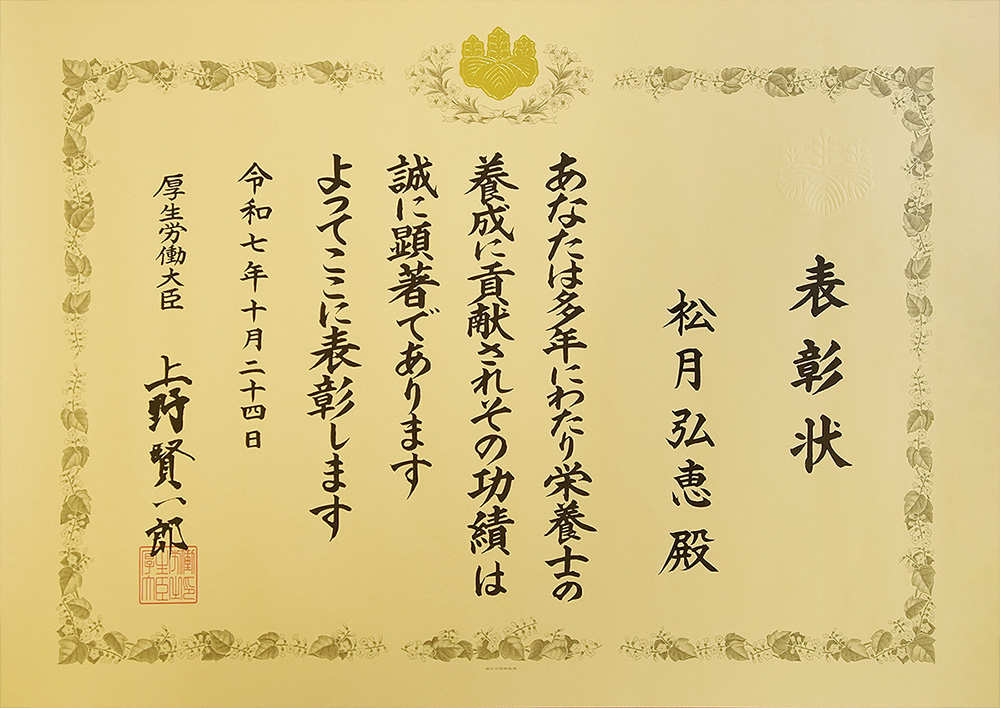 表彰状
松月弘恵殿
あなたは多年にわたり栄養士の
養成に貢献されその功績は
誠に顕著であります
よってここに表彰します
令和七年十月二十四日
厚生労働大臣
上野賢一郎